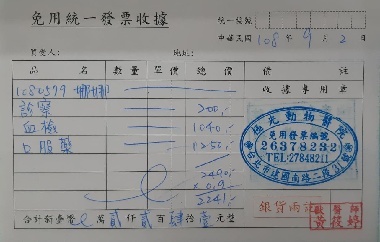 免用統一發票收據
統一編號
中華民國 108 年 9 月 2 日
買受人： 地址：
品 名 數量 單價 總價 備 註
1080599 收據專用章
診察 200.-
血檢 1040.-
口服藥 1250.-
2490.-
× 0.9
2241.-
極光動物醫院
免用發票編號
26378232
TEL:27848211
台北市建國南路二段31號
銀貨兩訖
獸醫師
黃筱婷
合計新臺幣 0 萬 貳 仟 貳 百 肆 拾 壹 元整